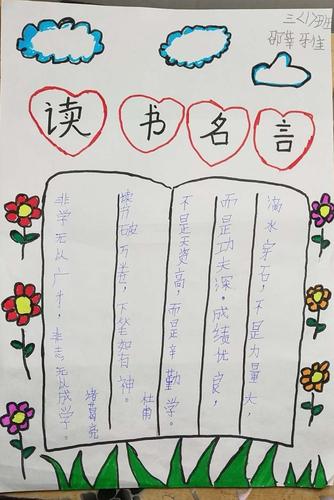 三<1>班
读书名言
滴水穿石，不是力量大，
而是功夫深。成绩优良，
不是天资高，而是辛勤学。
读书破万卷，下笔如有神。
杜甫
非学无以广才，非志无以成学。
诸葛亮